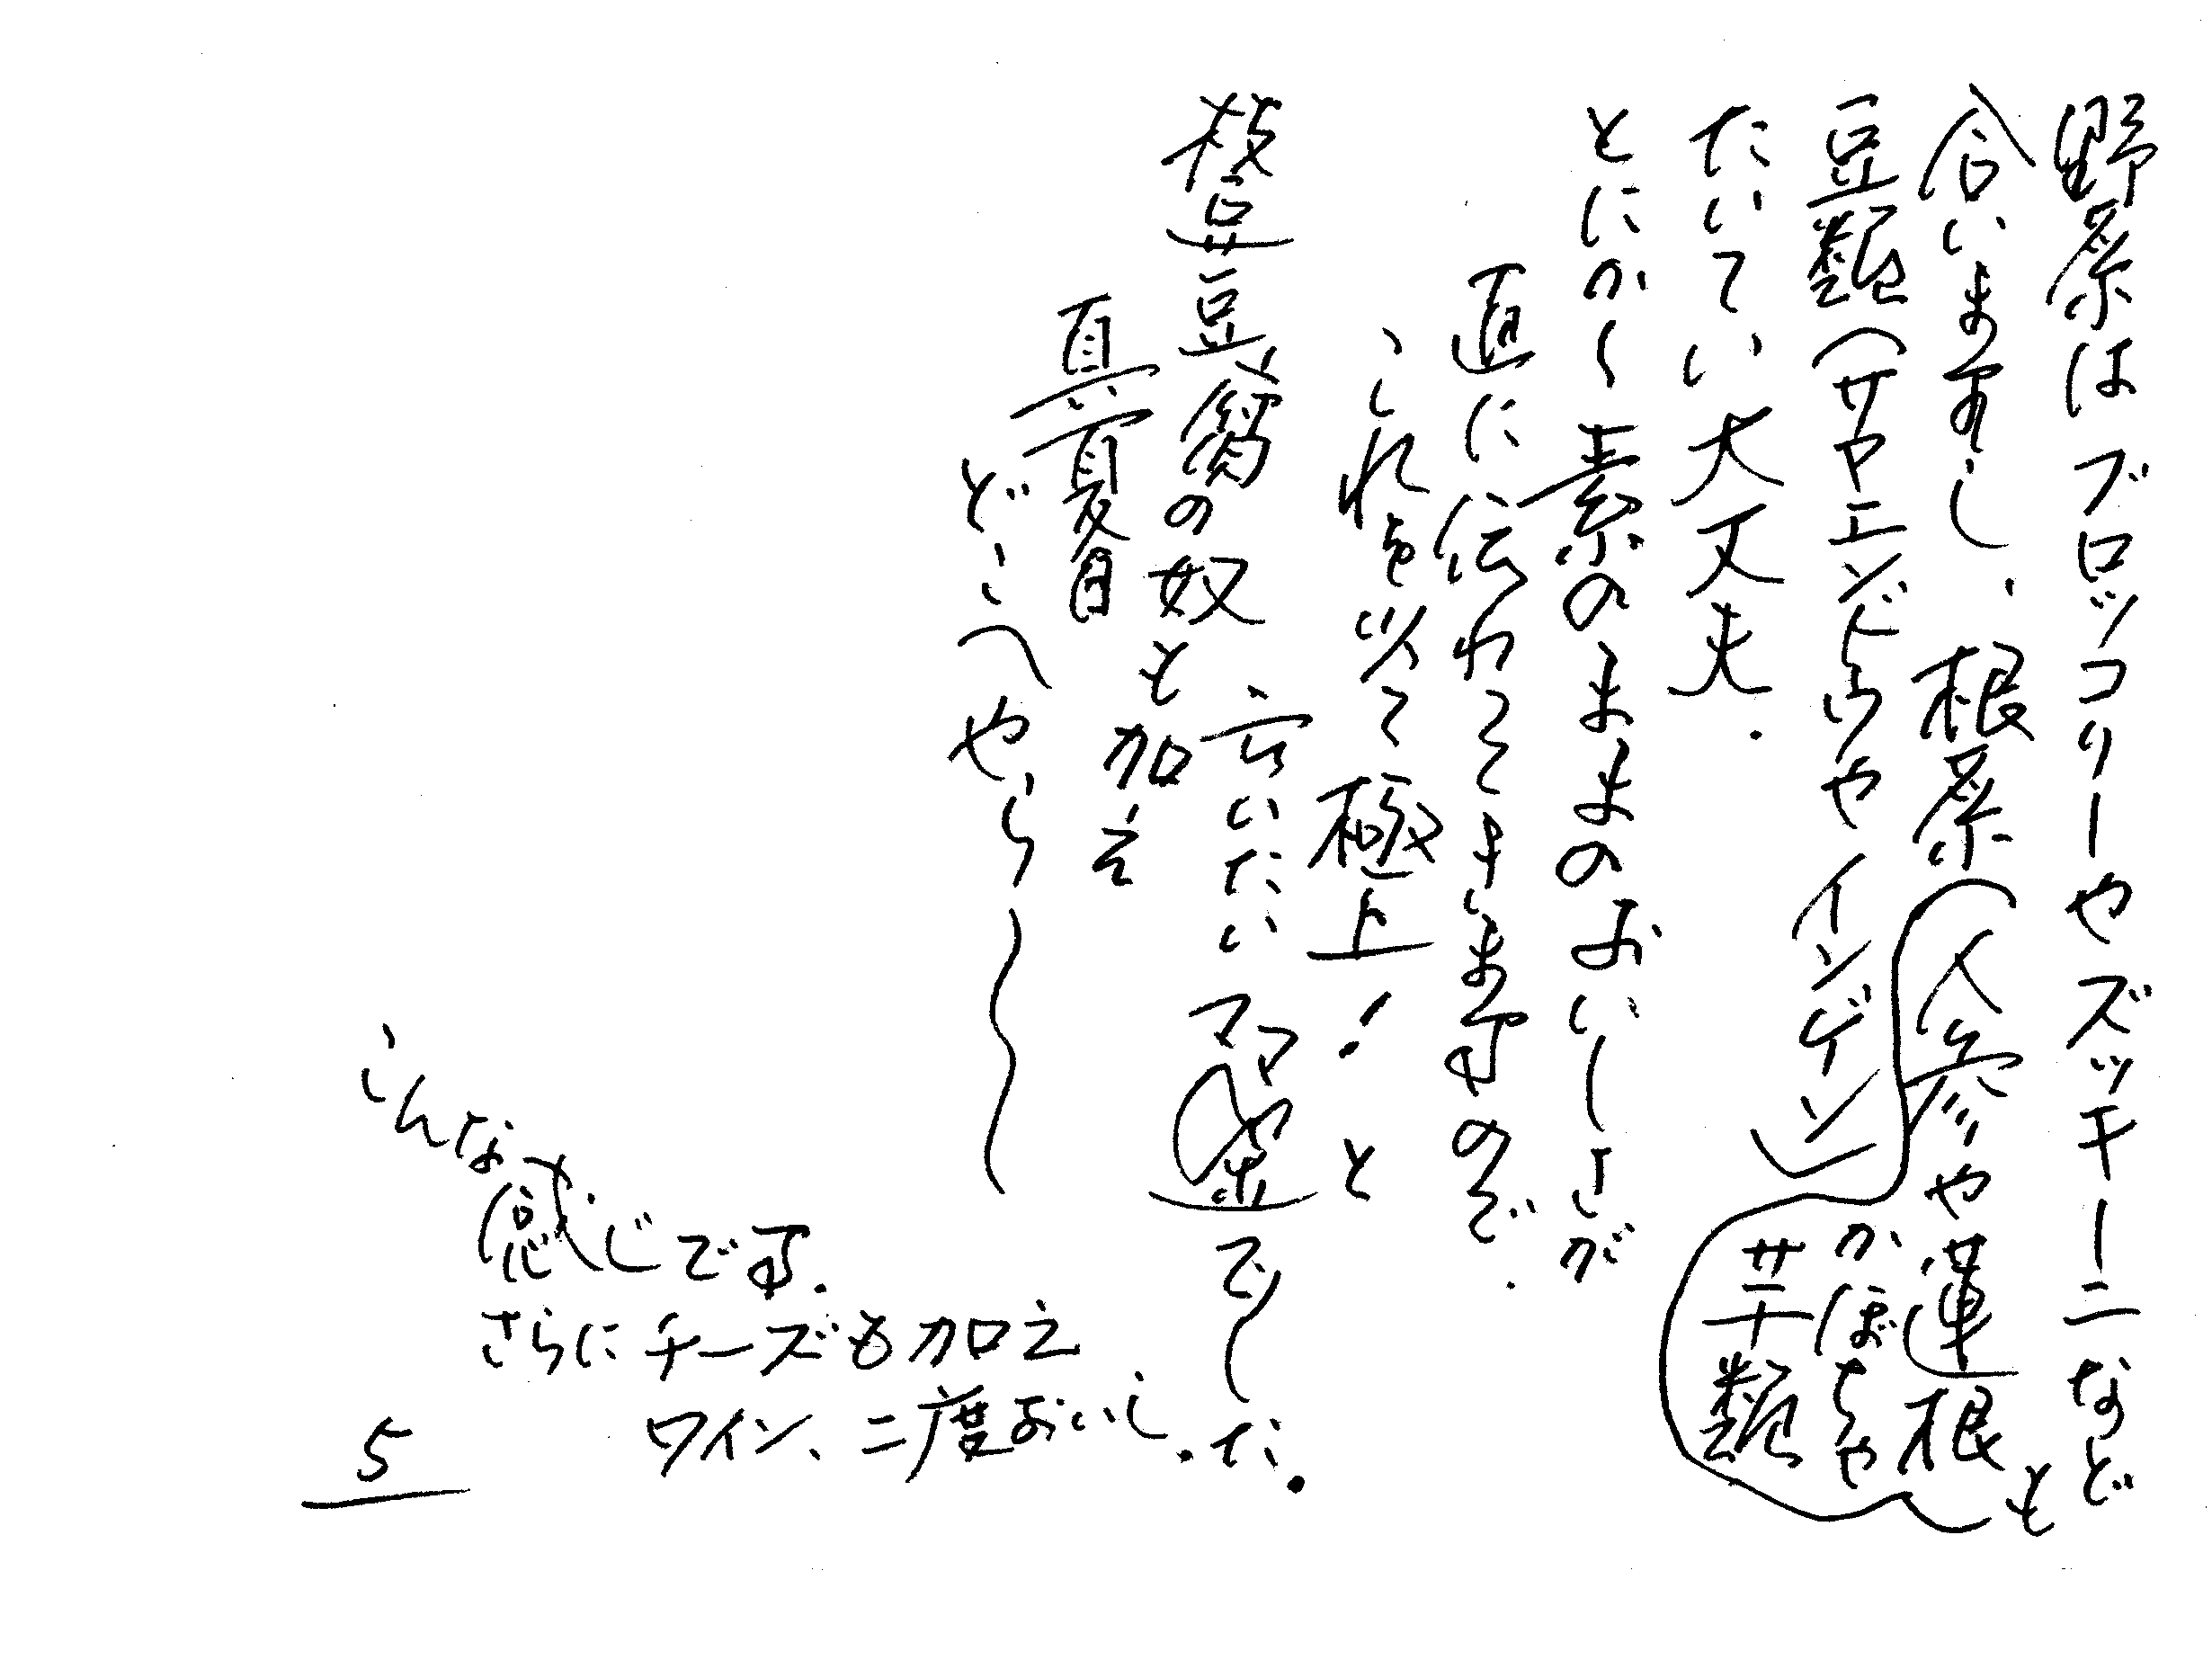 野菜はブロッコリーやズッキーニなども
合いますし、根菜(人参や蓮根
かぼちゃ
芋類)
豆類(サヤエンドウやインゲン)
たいてい大丈夫.
とにかく素のままのおいしさが
直に伝わってきますので.
これを以て極上!と
云いたいママでした.
枝豆豆腐の奴も加え
真夏日
どこへやら〜
こんな感じです.
さらにチーズも加え
ワイン、二度おいし.
5